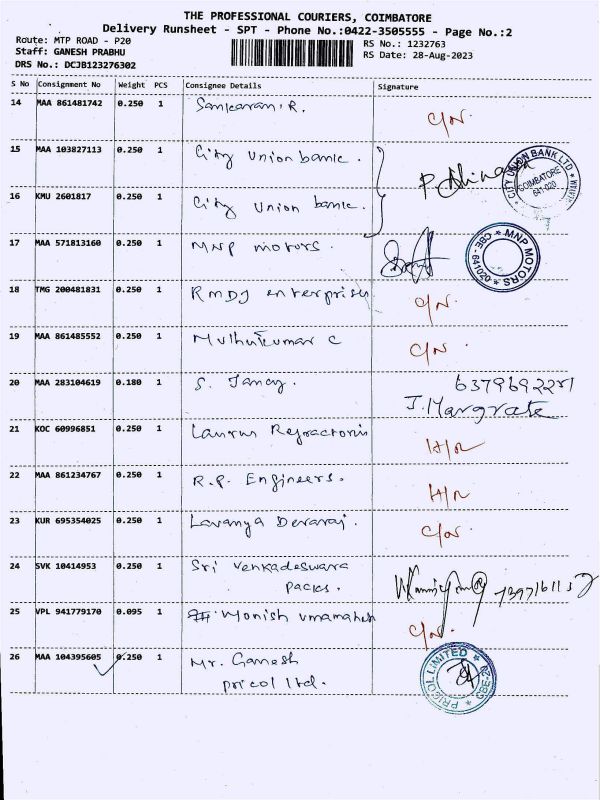 THE PROFESSIONAL COURIERS, COIMBATORE
Delivery Runsheet - SPT - Phone No.:0422-3505555 - Page No.:2
Route: MTP ROAD - P20
Staff: GANESH PRABHU
DRS No.: DCJB123276302
RS No.: 1232763
RS Date: 28-Aug-2023
S No Consignment No Weight PCS Consignee Details Signature
14 MAA 861481742 0.250 1 Sankaran. R. C/N.
15 MAA 103827113 0.250 1 City Union bank.
CITY UNION BANK LTD COIMBATORE 641-020
16 KMU 2601817 0.250 1 City Union bank.
17 MAA 571813160 0.250 1 MNP motors.
MNP MOTORS CBE-641020
18 TMG 200481831 0.250 1 RMDJ enterprises C/N.
19 MAA 861485552 0.250 1 Muthukumar C C/N.
20 MAA 283104619 0.180 1 S. Jancy. 6379692271
J. Margrate
21 KOC 60996851 0.250 1 H/R
22 MAA 861234767 0.250 1 R.P. Engineers. H/R
23 KUR 695354025 0.250 1 Lavanya Devaraj. C/N.
24 SVK 10414953 0.250 1 Sri Venkadeswara
packs.
25 VPL 941779170 0.095 1 Monish umamahesh C/N.
26 MAA 104395605 0.250 1 Mr. Ganesh
pricol ltd.
PRICOL LIMITED